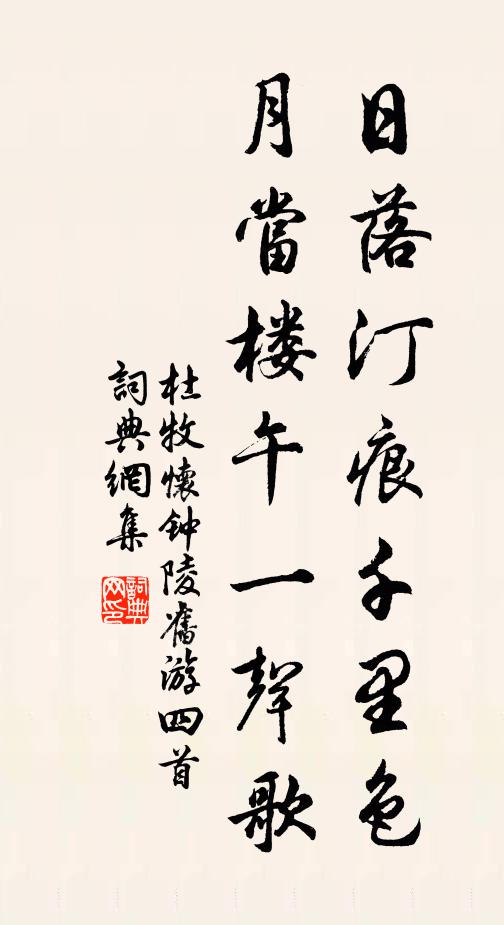 日落汀痕千里色
月當楼午一聲歌
杜牧懷钟陵舊游四首
詞典網集
詞典網印